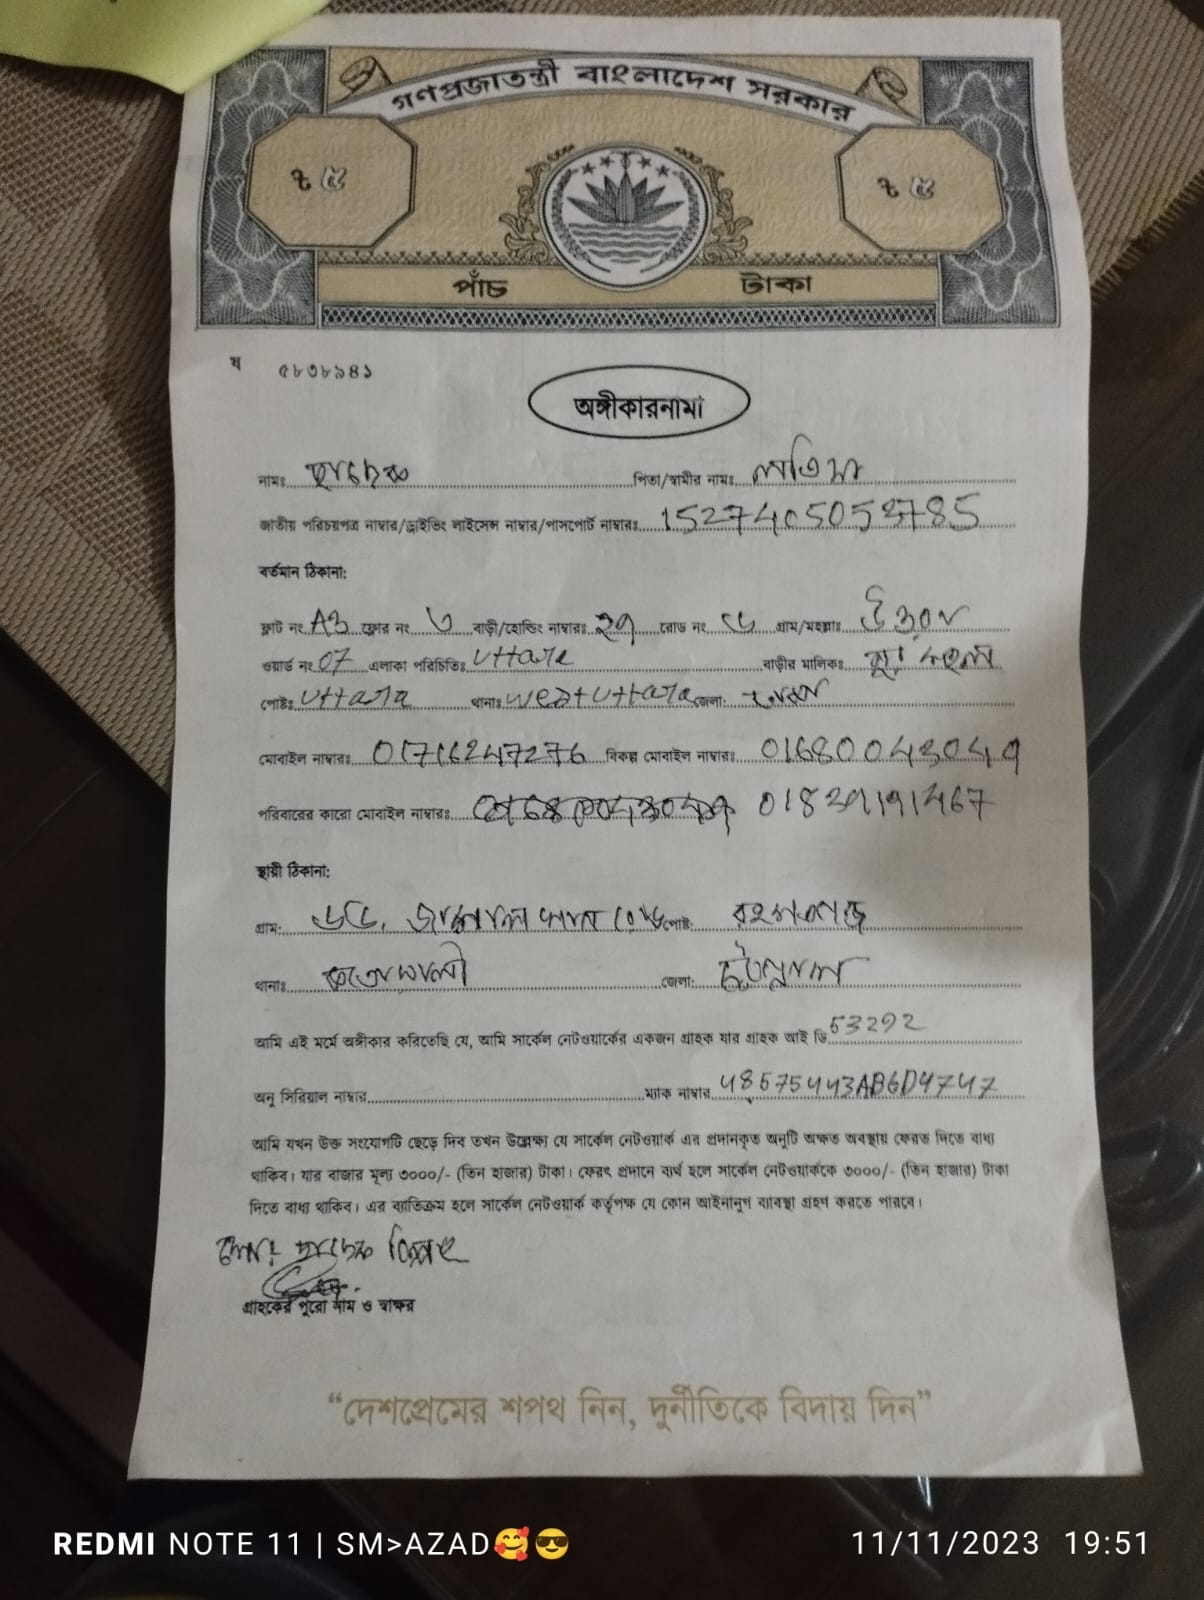 গণপ্রজাতন্ত্রী বাংলাদেশ সরকার
৳ ৫ ৳ ৫
পাঁচ টাকা
ঘ ৫৮৩৮৯৪১
অঙ্গীকারনামা
নামঃ পিতা/স্বামীর নামঃ
জাতীয় পরিচয়পত্র নাম্বার/ড্রাইভিং লাইসেন্স নাম্বার/পাসপোর্ট নাম্বারঃ
বর্তমান ঠিকানা:
ফ্লাট নং A3 ফ্লোর নং ৩ বাড়ী/হোল্ডিং নাম্বারঃ ২৭ রোড নং গ্রাম/মহল্লাঃ
ওয়ার্ড নং 07 এলাকা পরিচিতিঃ Uttara বাড়ীর মালিকঃ
পোষ্টঃ Uttara থানাঃ West Uttara জেলা:
মোবাইল নাম্বারঃ 01716247276 বিকল্প মোবাইল নাম্বারঃ 01680043049
পরিবারের কারো মোবাইল নাম্বারঃ
স্থায়ী ঠিকানা:
গ্রাম: পোষ্ট: রহমতগঞ্জ
থানাঃ কতোয়ালী জেলা:
আমি এই মর্মে অঙ্গীকার করিতেছি যে, আমি সার্কেল নেটওয়ার্কের একজন গ্রাহক যার গ্রাহক আই ডি 53292
অনু সিরিয়াল নাম্বার ম্যাক নাম্বার 48575443AB6D4747
আমি যখন উক্ত সংযোগটি ছেড়ে দিব তখন উল্লেক্ষ্য যে সার্কেল নেটওয়ার্ক এর প্রদানকৃত অনুটি অক্ষত অবস্থায় ফেরত দিতে বাধ্য
থাকিব। যার বাজার মূল্য ৩০০০/- (তিন হাজার) টাকা। ফেরৎ প্রদানে ব্যর্থ হলে সার্কেল নেটওয়ার্ককে ৩০০০/- (তিন হাজার) টাকা
দিতে বাধ্য থাকিব। এর ব্যতিক্রম হলে সার্কেল নেটওয়ার্ক কর্তৃপক্ষ যে কোন আইনানুগ ব্যাবস্থা গ্রহণ করতে পারবে।
গ্রাহকের পুরো নাম ও স্বাক্ষর
“দেশপ্রেমের শপথ নিন, দুর্নীতিকে বিদায় দিন”
REDMI NOTE 11 | SM>AZAD🥰😎 11/11/2023 19:51